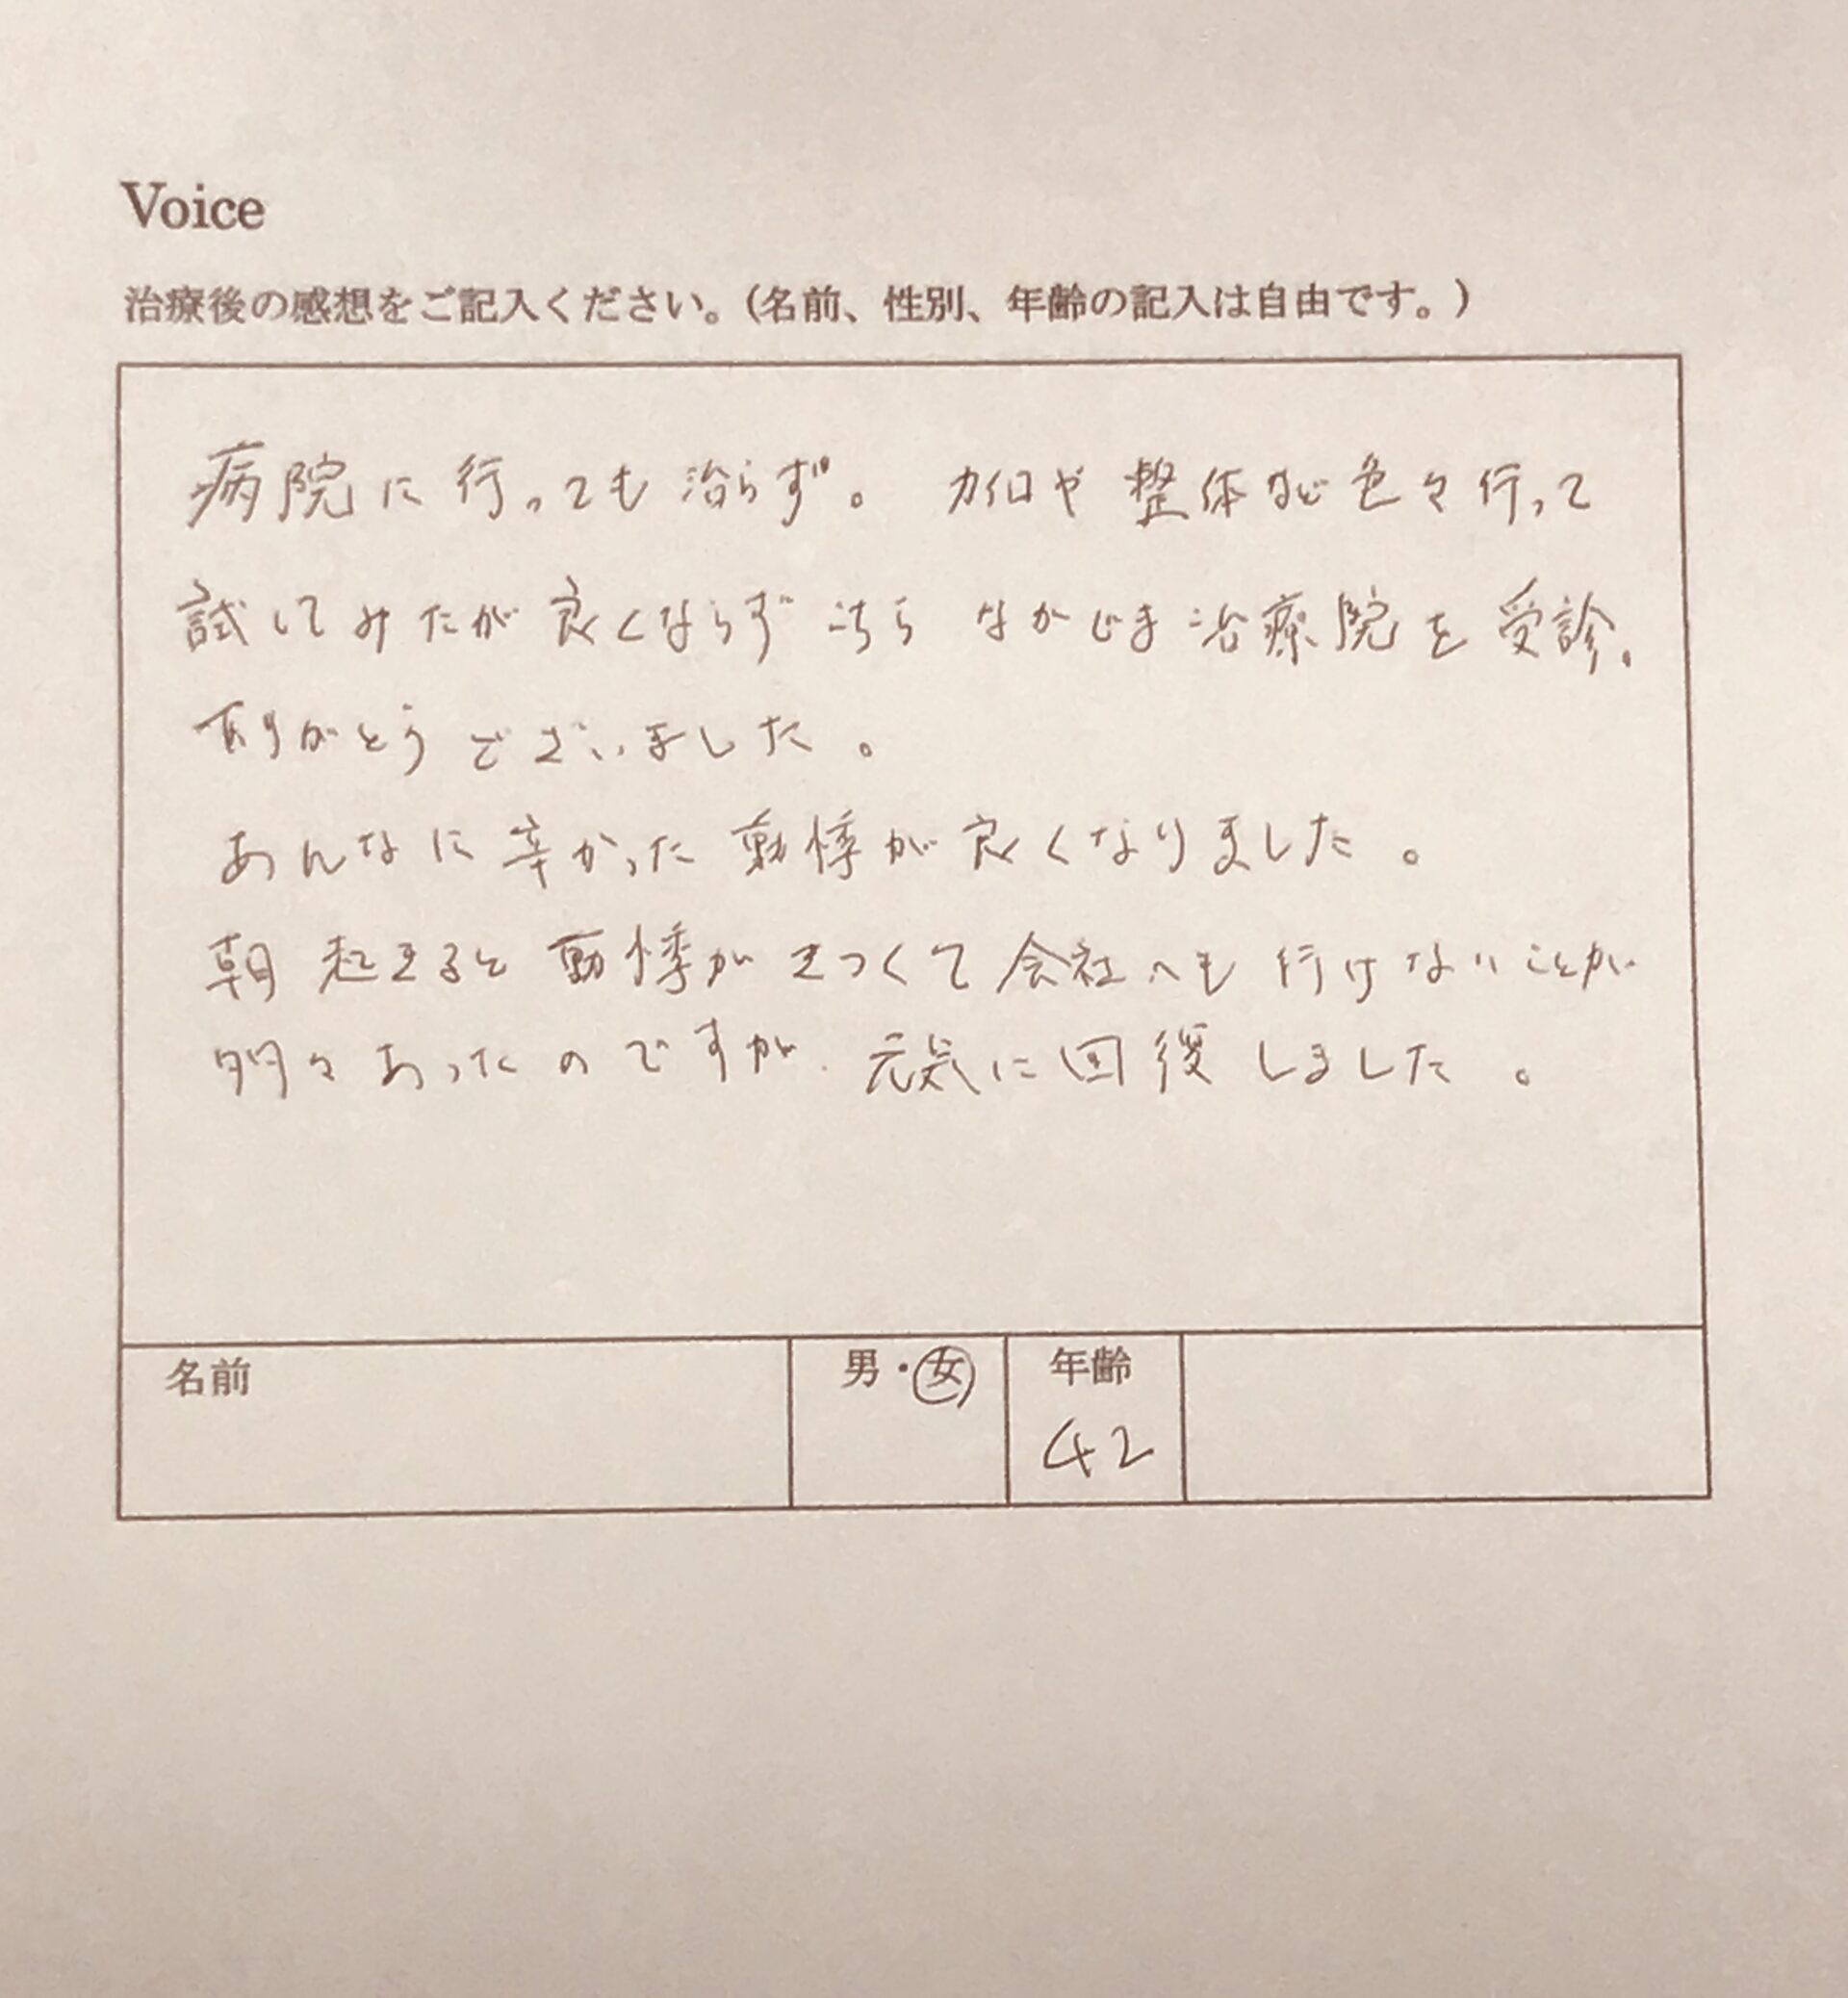 Voice
治療後の感想をご記入ください。（名前、性別、年齢の記入は自由です。）
病院に行っても治らず。 カイロや整体など色々行って
試してみたが良くならずこちら なかじま治療院を受診。
ありがとうございました。
あんなに辛かった動悸が良くなりました。
朝起きると動悸がきつくて会社へも行けないことが
多々あったのですが、元気に回復しました。
名前 男・女 年齢
42